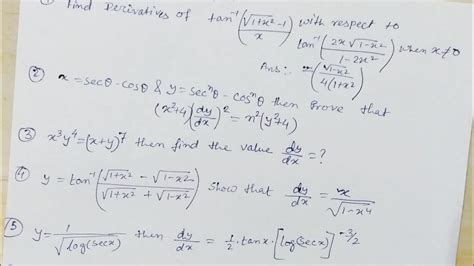 ① Find Derivatives of tan⁻¹((√(1+x²) -1)/x) with respect to
tan⁻¹(2x√(1-x²)/(1-2x²)) when x≠0
Ans:. -(√(1-x²)/(4(1+x²)))
② x = secθ - cosθ & y = secⁿθ - cosⁿθ then Prove that
(x²+4)(dy/dx)² = n²(y²+4)
③ x³y⁴ = (x+y)⁷ then find the value dy/dx = ?
④ y = tan⁻¹((√(1+x²) - √(1-x²))/(√(1+x²) + √(1-x²))) show that dy/dx = x/√(1-x⁴)
⑤ y = 1/√(log(secx)) then dy/dx = 1/2 . tanx . [log(secx)]^(-3/2)